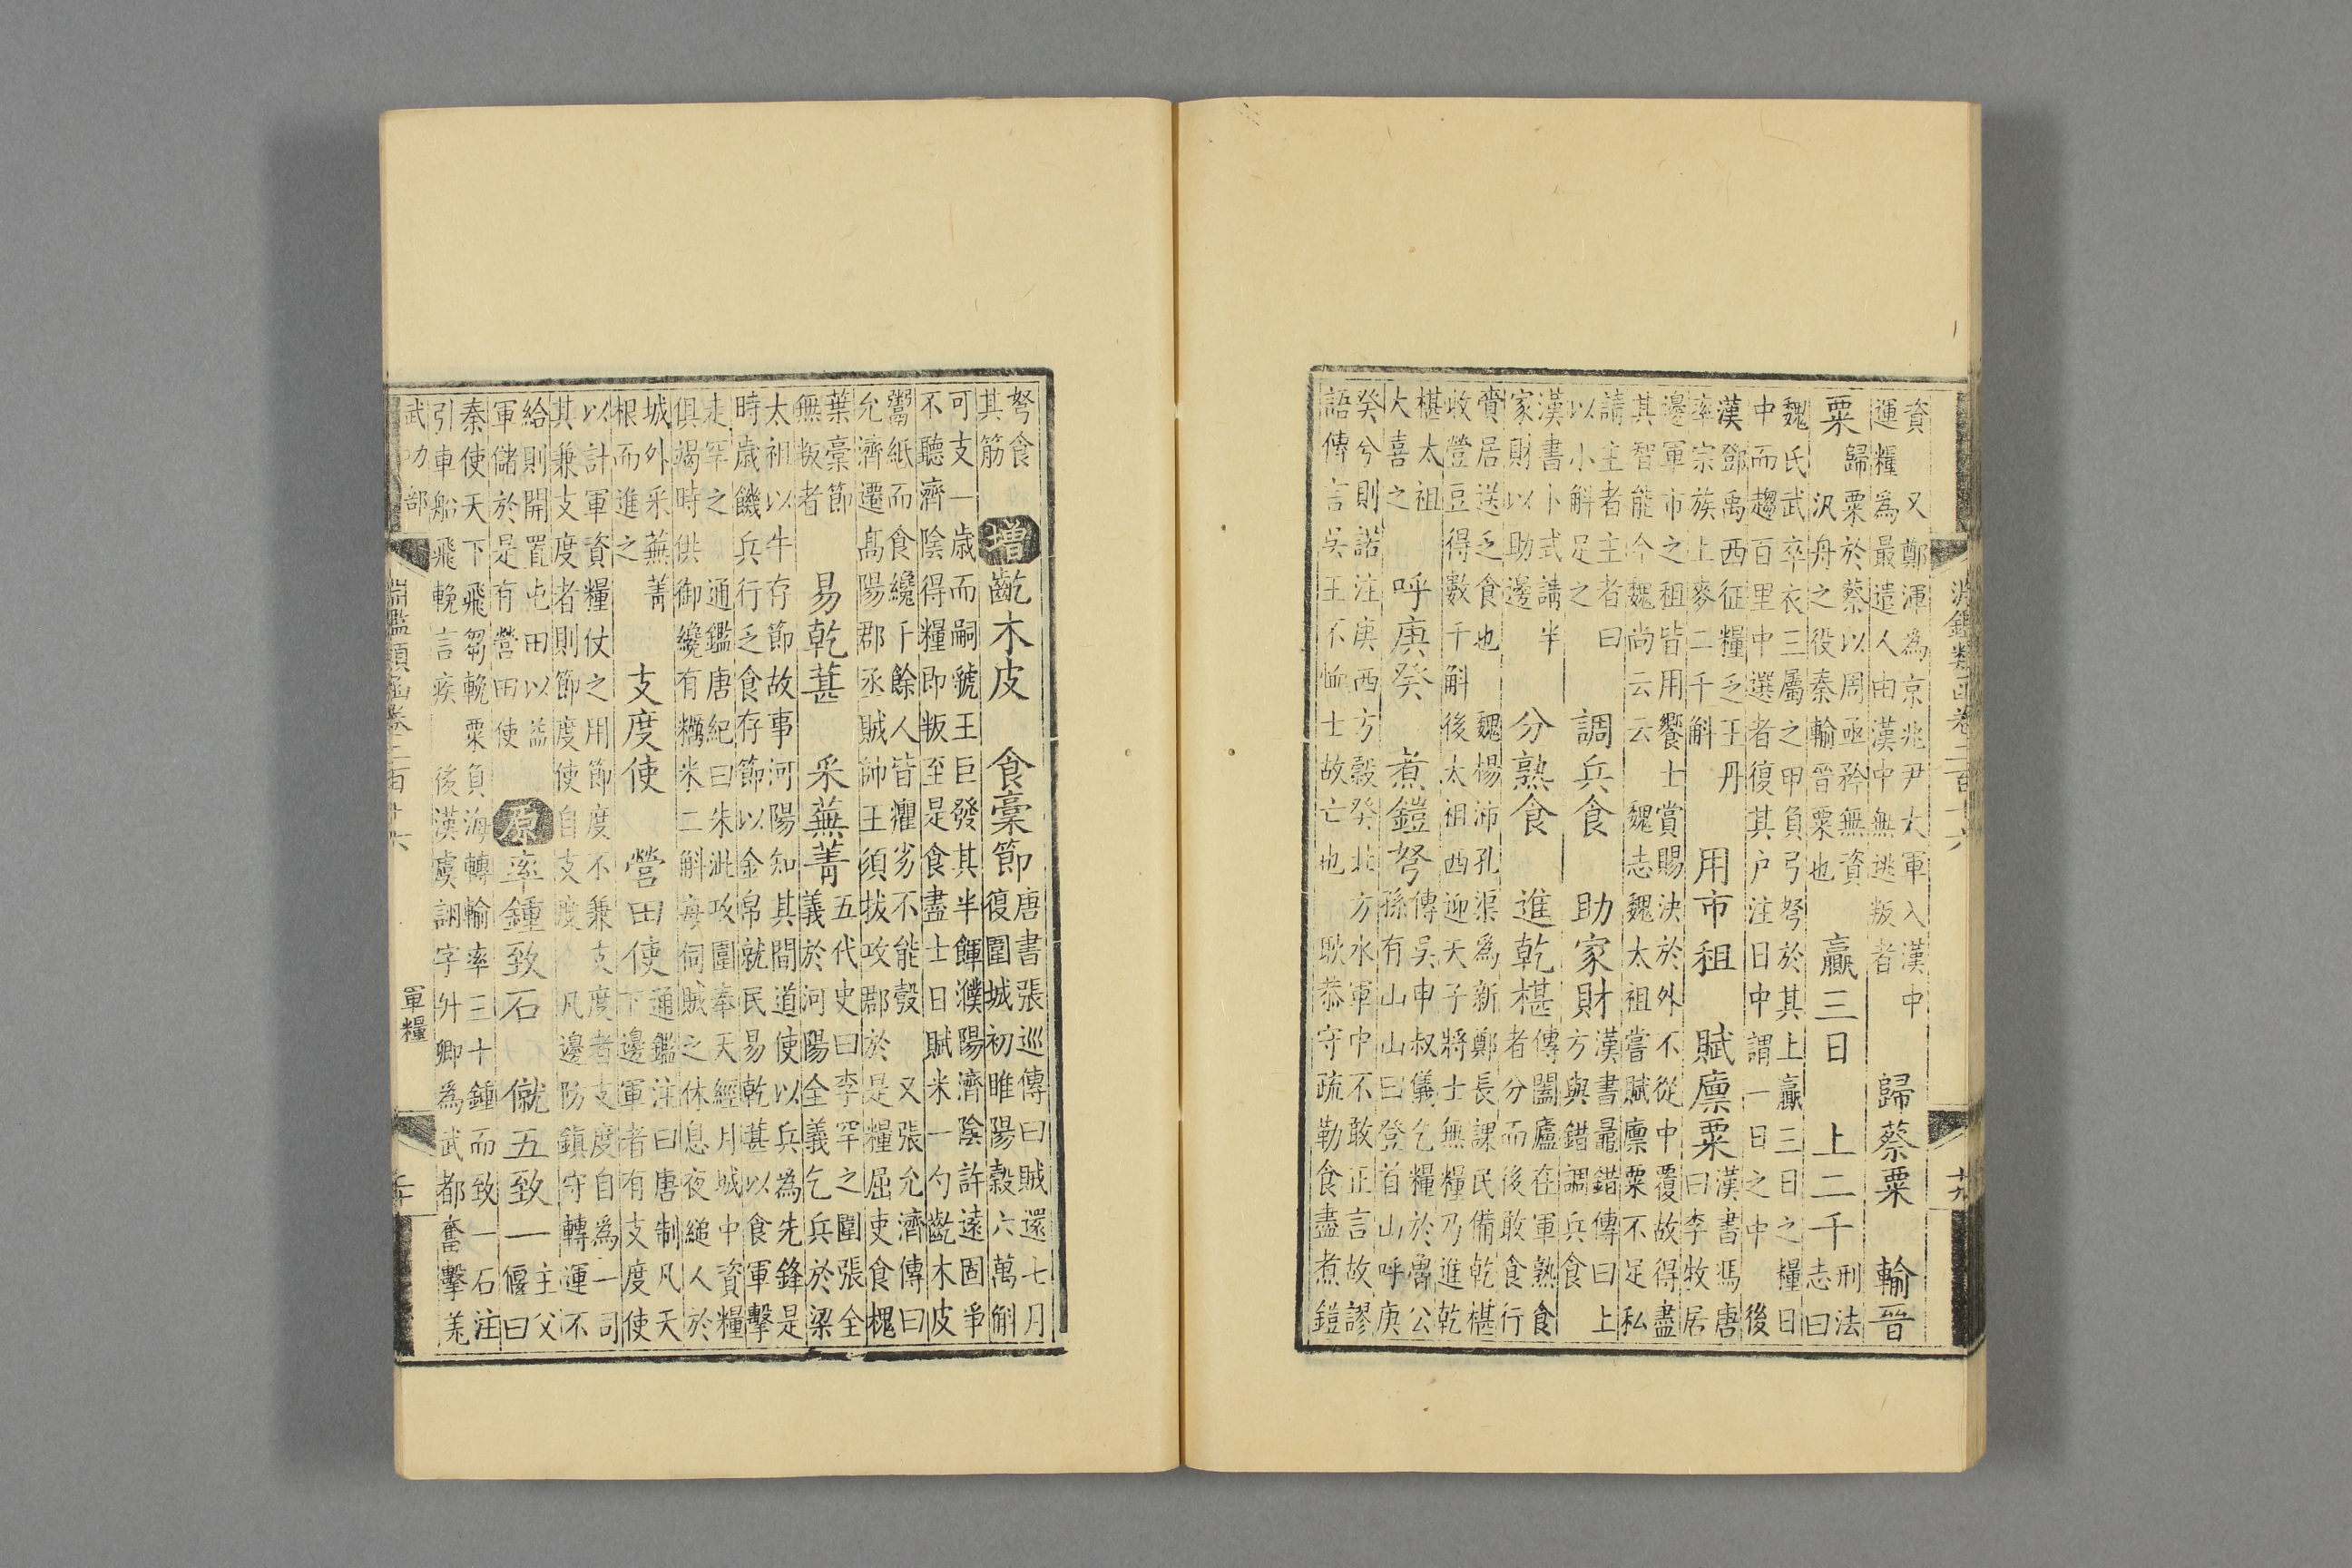 資　又鄭渾為京兆尹大軍入漢中
運糧為最遣人由漢中無逃叛者
歸蔡粟　輸晉
粟
歸粟於蔡以周亟矜無資
汎舟之役秦輸晉粟也
贏三日　上二千
刑法
志曰
魏氏武卒衣三屬之甲負弓弩於其上贏三日之糧日
中而趨百里中選者復其户注日中謂一日之中　後
漢鄧禹西征糧乏王丹
率宗族上麥二千斛
用市租　賦廩粟
漢書馮唐
曰李牧居
邊軍市之租皆用饗士賞賜決於外不從中覆故得盡
其智能今魏尚云云　魏志魏太祖嘗賦廩粟不足私
請主者主者曰
以小斛足之
調兵食　助家財
漢書鼂錯傳曰上
方與錯調兵食
漢書卜式請半
家財以助邊
分熟食　進乾椹
傳闔廬在軍熟食
者分而後敢食行
賷居送乏食也　魏楊沛孔渠為新鄭長課民備乾椹
收䝁豆得數千斛　後太祖西迎天子將士無糧乃進乾
椹太祖
大喜之
呼庚癸　煮鎧弩
傳吳申叔儀乞糧於魯公
孫有山山曰登首山呼庚
癸兮則諾注庚西方穀癸北方水軍中不敢正言故謬
語傳言吳王不恤士故亡也　耿恭守疏勒食盡煮鎧
淵鑑類函卷二百十六
十九
弩食
其筋
增齕木皮　食稾節
唐書張巡傳曰賊還七月
復圍城初睢陽穀六萬斛
可支一歲而嗣虢王巨發其半餫濮陽濟陰許遠固爭
不聽濟陰得糧即叛至是食盡士日賦米一勺齕木皮
鬻紙而食纔千餘人皆癯劣不能彀　又張允濟傳曰
允濟遷髙陽郡丞賊帥王須拔攻郡於是糧屈吏食槐
葉稾節
無叛者
易乾葚　采蕪菁
五代史曰李罕之圍張全
義於河陽全義乞兵於梁
太祖以牛存節故事河陽知其間道使以兵為先鋒是
時歲饑兵行乏食存節以金帛就民易乾葚以食軍擊
走罕之　通鑑唐紀曰朱泚攻圍奉天經月城中資糧
俱竭時供御纔有糲米二斛每伺賊之休息夜縋人於
城外采蕪菁
根而進之
支度使　營田使
通鑑注曰唐制凡天
下邊軍者有支度使
以計軍資糧仗之用節度不兼支度者支度自為一司
其兼支度者則節度使自支度　凡邊防鎮守轉運不
給則開置屯田以益
軍儲於是有營田使
原率鍾致石　僦五致一
主父
偃曰
秦使天下飛芻輓粟負海轉輸率三十鍾而致一石注
引車船飛輓言疾　後漢虞詡字升卿為武都奮擊羌
武功部
淵鑑類函卷二百十六
軍糧
二十